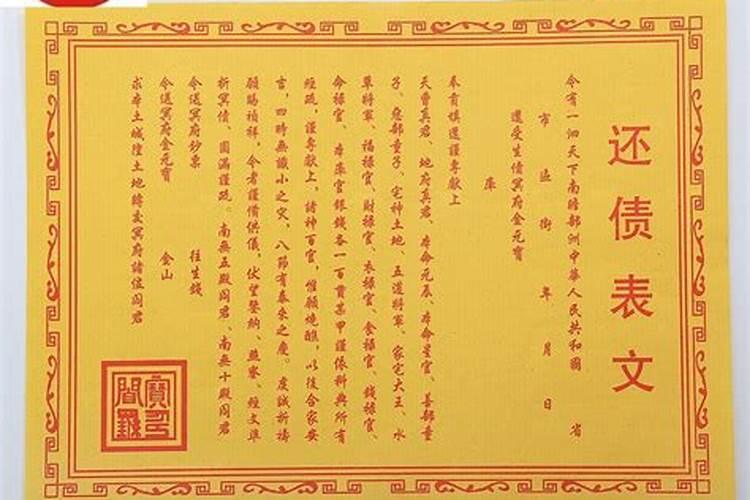 还债表文
今有一泗天下南瞻部洲中華人民共和國 省
市 區 街 年 月 日
還受生債冥府金元寶
庫
奉肯填還謹專獻上
天曹真君、地府真君、本命元辰、本命星官、善部童
子、惡部童子、宅神土地、五道將軍、家宅大王、水
草將軍、福祿官、財祿官、衣祿官、食祿官、錢祿官、
命祿官、本庫官銀錢各一百貫某甲謹依科典所有
經疏，謹專獻上，諸神百官，惟願燒醮，以後合家安
言，四時無識小之灾，八節有泰來之慶。虔誠祈禱
願賜禎祥，今者謹備供儀，伏望鑒納、燕寥、經文準
折冥債、圓滿謹疏。南無五殿阎君、南無十殿阎君
今送冥府鈔票 往生錢
今送冥府金元寶 金山
求本土城隍土地轉交冥府諸位阎君